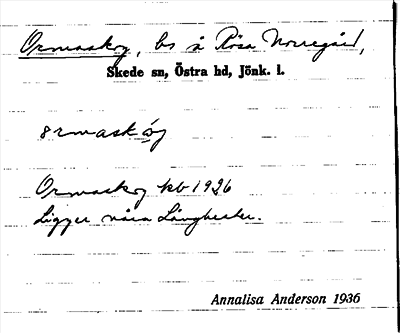 Ormaskog, bs å Rösa Norregård,
Skede sn, Östra hd, Jönk. l.
ormaskóg
Ormaskog kb 1926
Ligger nära Långbester.
Annalisa Anderson 1936